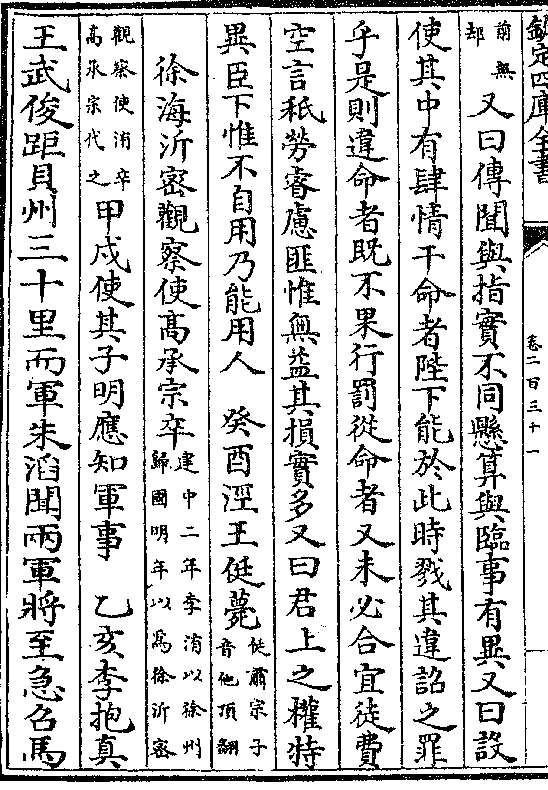 欽定四庫全書
卷二百三十一
前無却又曰傳聞與指實不同懸算與臨事有異又曰設
使其中有肆情干命者陛下能於此時戮其違詔之罪
乎是則違命者既不果行罰從命者又未必合宜徒費
空言秖勞睿慮匪惟無益其損實多又曰君上之權特
異臣下惟不自用乃能用人　癸酉涇王侹薨侹肅宗子音他頂翻
徐海沂密觀察使髙承宗卒建中二年李洧以徐州歸國明年以為徐沂密
觀察使洧卒髙承宗代之甲戍使其子明應知軍事　乙亥李抱真
王武俊距貝州三十里而軍朱滔聞兩軍將至急召馬